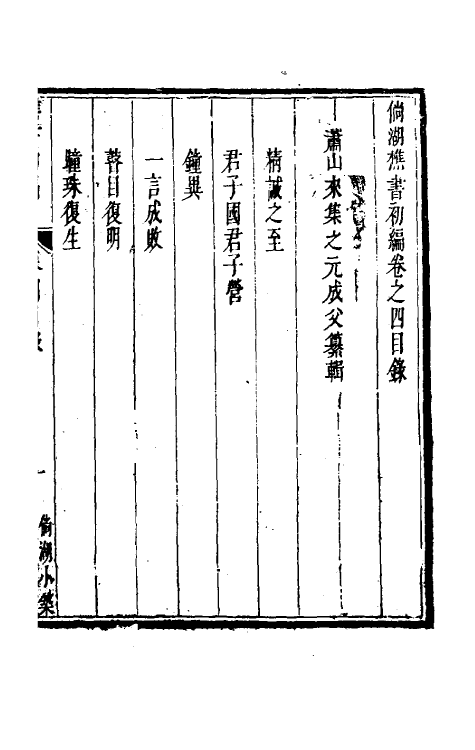 倘湖樵書初編卷之四目錄
蕭山來集之元成父纂輯
精誠之至
君子國君子營
鐘異
一言成敗
瞽目復明
瞳珠復生
倘湖小築